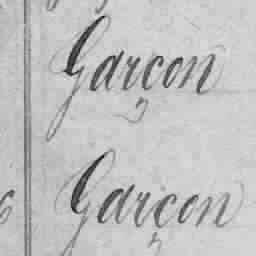 Garçon
6 Garçon